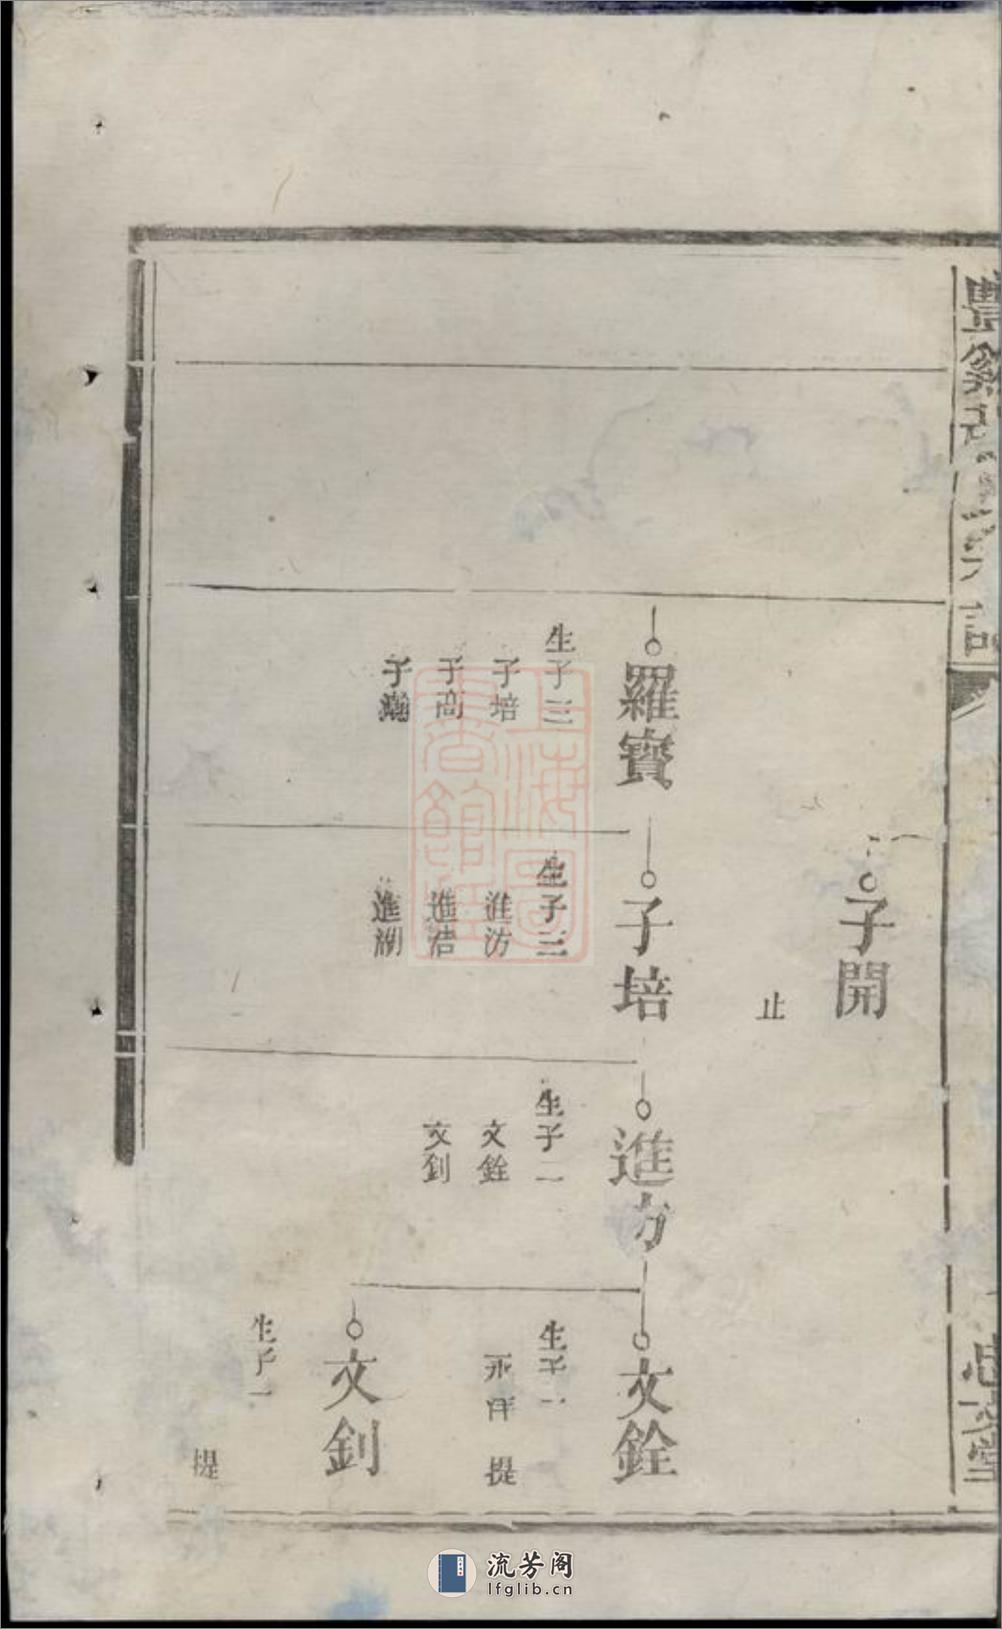 子開
止
羅寳
生子三
子培
子高
子瀚
子培
生子三
進汸
進浩
進湖
進方
生子二
文銓
文釗
文銓
生子一
提
文釗
生子一
提
上海圖書館藏
流芳阁
lfglib.cn